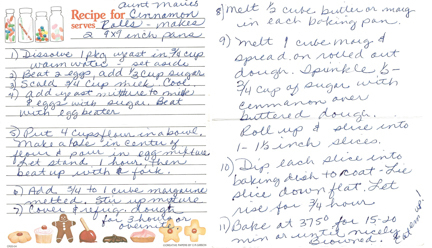 aunt marie's
Recipe for Cinnamon
Rolls - makes
serves 2 9x9 inch pans
1) Dissolve 1 pkg yeast in 1/4 cup
warm water - set aside
2) Beat 2 eggs, add 1/2 cup sugar
3) Scald 3/4 cup milk. Cool.
4) Add yeast mixture to milk
& eggs with sugar. Beat
with egg beater
5) Put 4 cups flour in a bowl.
Make a hole in center of
flour & pour in egg mixture.
Let stand 1 hour, then
beat up with a fork.
6) Add 3/4 to 1 cube margarine
melted. Stir up mixture
7) Cover & refrig. dough
for 3 hours or
overnite
8) Melt 1/2 cube butter or marg
in each baking pan.
9) Melt 1 cube marg &
spread on rolled out
dough. Sprinkle 1/2-
3/4 cup of sugar with
cinnamon over
buttered dough.
Roll up & slice into
1 - 1 1/2 inch slices.
10) Dip each slice into
baking dish to coat - Lie
slice down flat. Let
rise for 3/4 hour
11) Bake at 375° for 15-20
min or until nicely
browned.